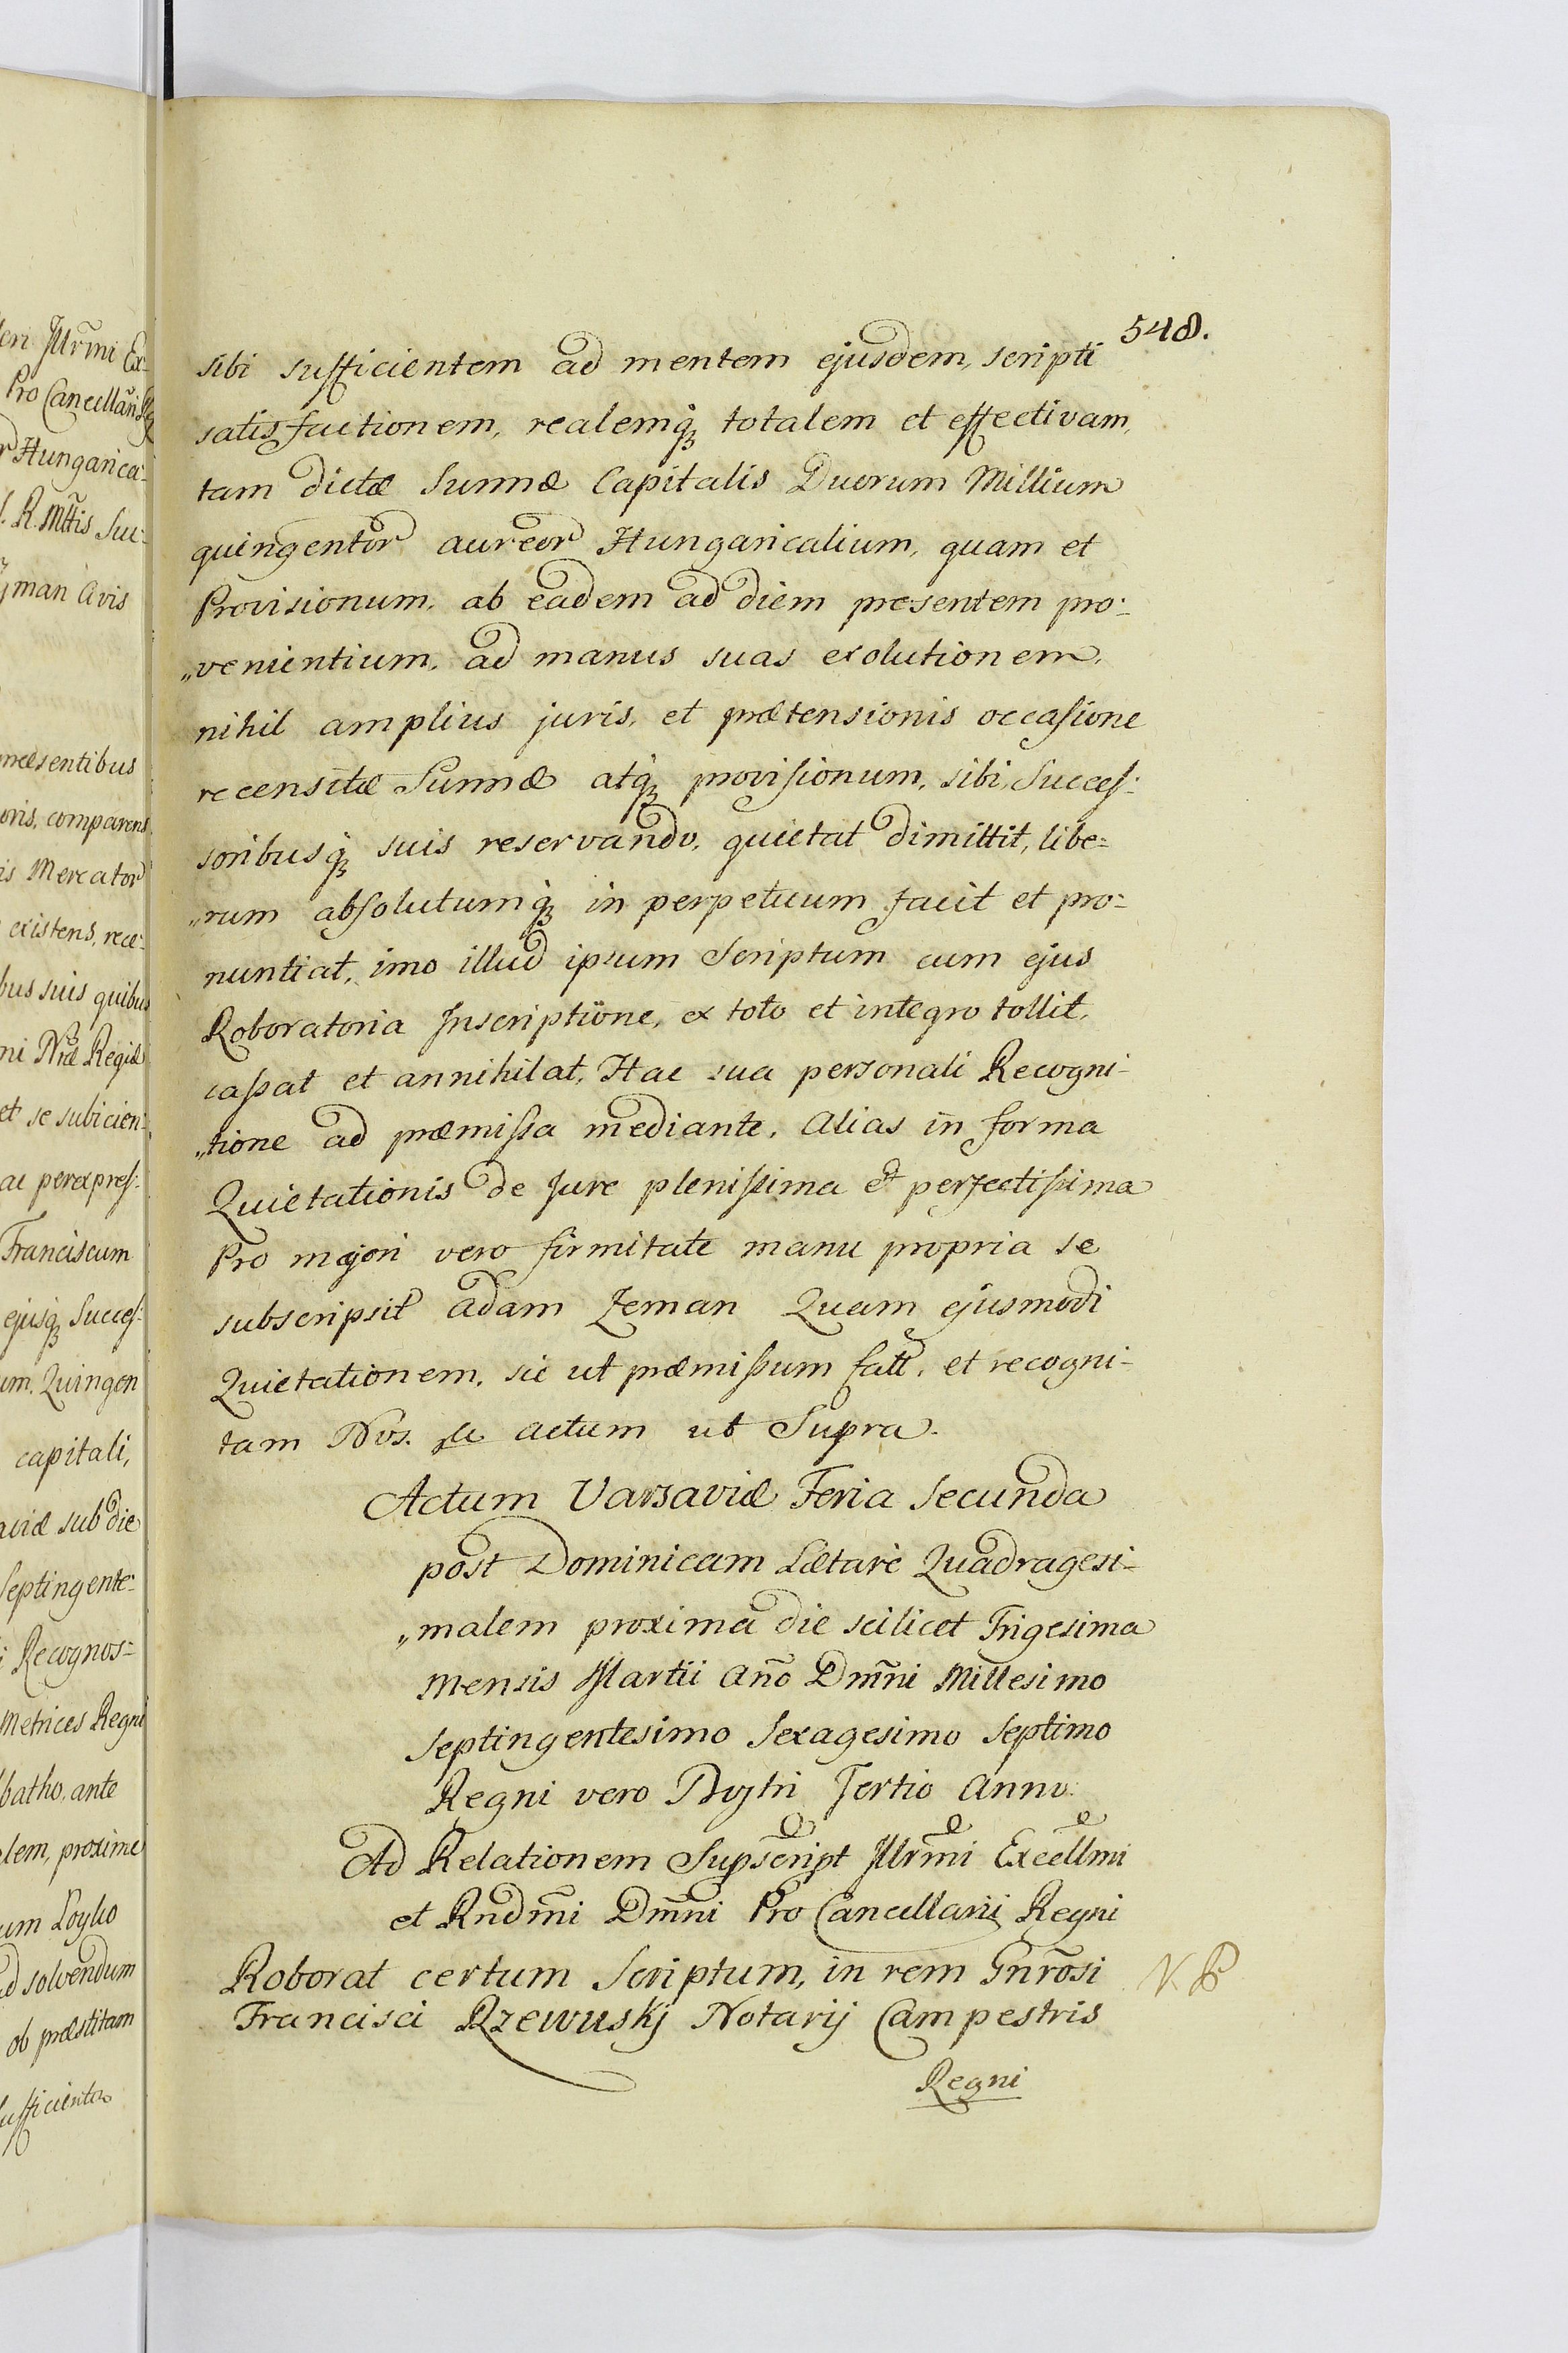 548.
sibi sufficientem ad mentem ejusdem, scripti
satisfactionem, realemq̃ totalem et effectivam,
tam dictæ Summæ Capitalis Duorum Millium
quingentor aureor Hungaricalium, quam et
Provisionum, ab eadem ad diem presentem pro:
„venientium, ad manus suas exolutionem,
nihil amplius juris, et prætensionis occaſione
recensitæ Summæ atq̃ proviſionum, sibi, Succeſ:
soribusq̃ suis reservando, quietat dimittit, libe=
„rum abſolutumq̃ in perpetuum facit et pro=
nuntiat, imo illud ipsum Scriptum cum ejus
Roboratoria Inscriptione, ex toto et integro tollit,
caſsat et annihilat, Hac sua personali Recogni-
„tione ad præmiſsa mediante, alias in forma
Quietationis de Jure pleniſsima et perfectiſsima
Pro majori vero firmitate manu propria se
subscripsit Adam Zeman Quam ejusmodi
Quietationem, sic ut præmiſsum fatt, et recogni-
tam Nos. &c actum ut Supra.
Actum Varsaviæ Feria Secunda
post Dominicam Lætare Quadragesi-
„malem proxima die scilicet Trigesima
Mensis Martii año Dm̃ni Millesimo
Septingentesimo Sexagesimo Septimo
Regni vero Nostri Tertio Anno.
Ad Relationem Supscript Illr̃mi Excellmi
et Rndm̃i Dm̃ni Pro Cancellarii Regni
Roborat certum Scriptum, in rem Gnr̃osi
Francisci Rzewuskj Notarij Campestris
Regni
Illr̃mi Ex-
Pro Cancellarij
Hungarica:
R. Mttis Suc:
man Civis
præsentibus
oris, comparens
is Mercator
existens, rece:
bus suis quibus
ni Nræ Regiæ
et se subicien:
ac perexpreſ:
Franciscum
ejusq̃ Succeſ:
um, Quingen
capitali,
aviæ sub die
Septingente:
Recognos=
Metrices Regni
batho, ante
lem, proxime
um Loyko
ad solvendum
ob præstitam
sufficientem